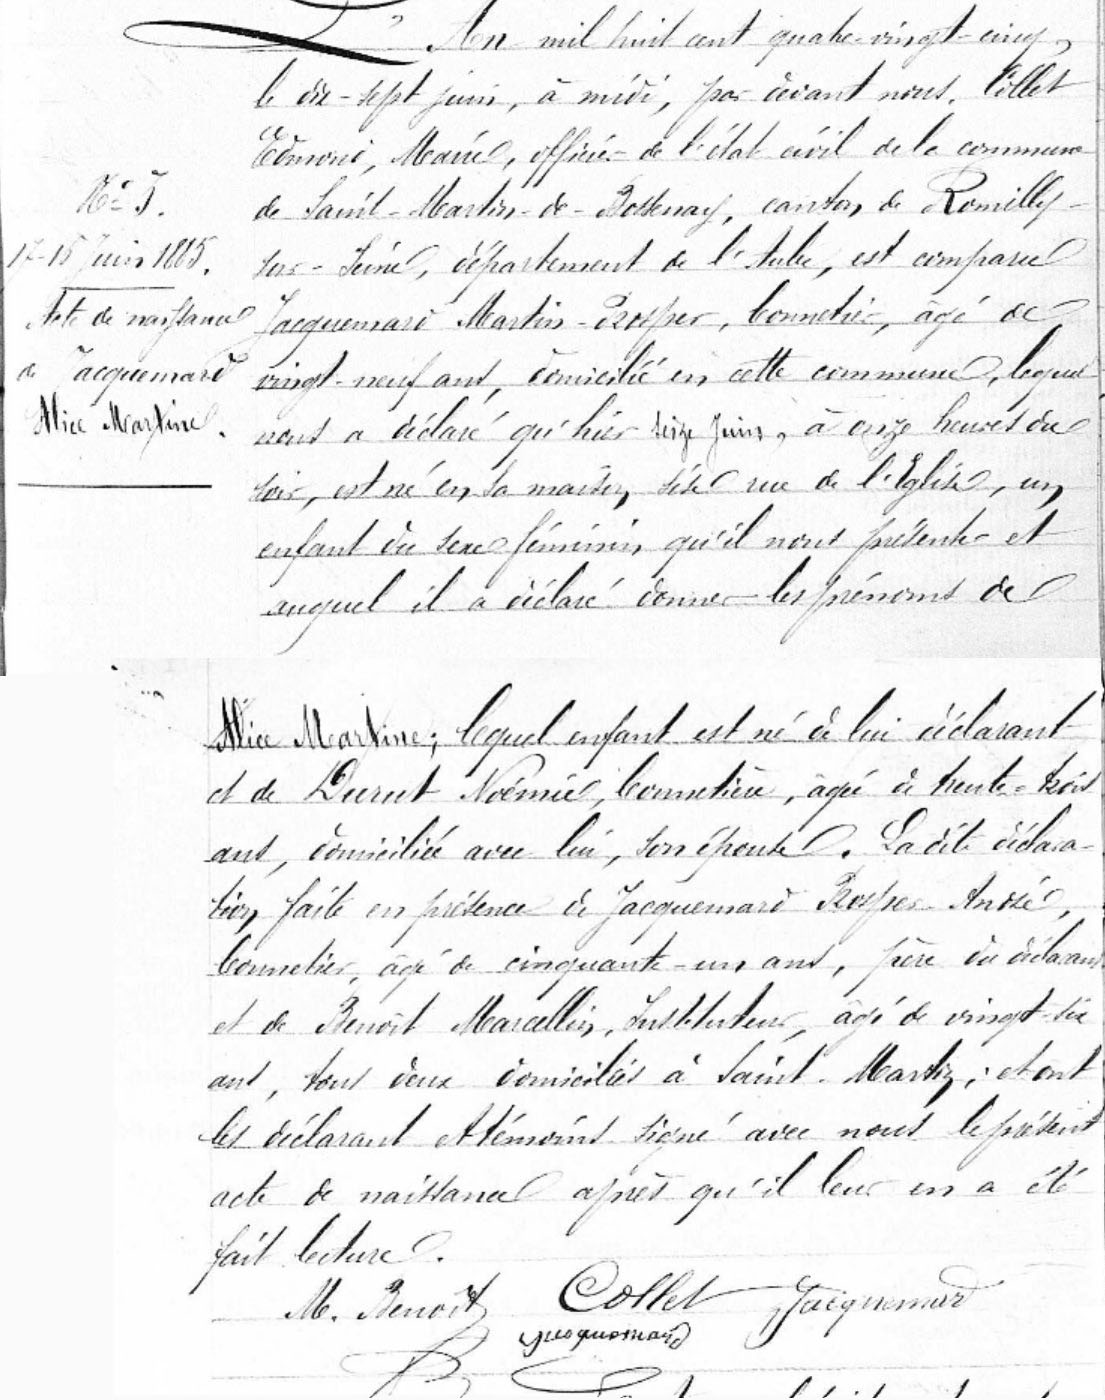 L'An mil huit cent quatre-vingt-cinq,
le dix-sept juin, à midi, par devant nous, Collet
Edmond, Maire, officier de l'état civil de la commune
de Saint-Martin-de-Bossenay, canton de Romilly-
sur-Seine, département de l'Aube, est comparu
Jacquemard Martin-Prosper, bonnetier, âgé de
vingt-neuf ans, domicilié en cette commune, lequel
nous a déclaré qu'hier seize juin, à onze heures du
soir, est né en sa maison, sise rue de l'Eglise, un
enfant du sexe féminin qu'il nous présente et
auquel il a déclaré donner les prénoms de
N° 5.
17-18 juin 1885.
Acte de naissance
de Jacquemard
Alice Martine.
Alice Martine; lequel enfant est né de lui déclarant
et de Ducrut Noémie, bonnetière, âgée de trente-trois
ans, domiciliée avec lui, son épouse. La dite déclara-
tion faite en présence de Jacquemard Prosper-André,
bonnetier, âgé de cinquante-un ans, père du déclarant
et de Benoît Marcellin, Instituteur, âgé de vingt-six
ans, tous deux domiciliés à Saint-Martin; et ont
les déclarant et témoins signé avec nous le présent
acte de naissance après qu'il leur en a été
fait lecture.
M. Benoît Collet Jacquemard
Jacquemard